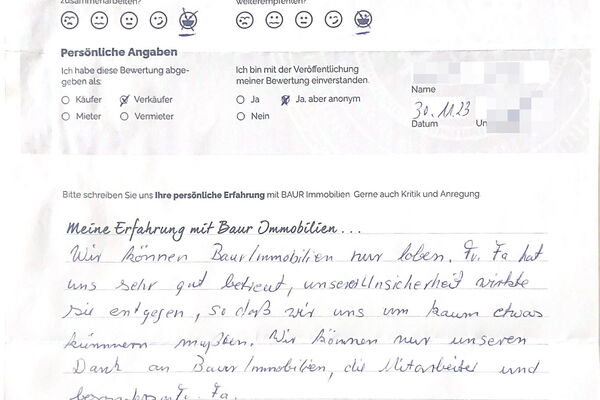 zusammenarbeiten?
weiterempfehlen?
Persönliche Angaben
Ich habe diese Bewertung abge-
geben als:
Käufer
Verkäufer
Mieter
Vermieter
Ich bin mit der Veröffentlichung
meiner Bewertung einverstanden.
Ja
Ja, aber anonym
Nein
Name
30.11.23
Datum
Un
Bitte schreiben Sie uns Ihre persönliche Erfahrung mit BAUR Immobilien. Gerne auch Kritik und Anregung
Meine Erfahrung mit Baur Immobilien...
Wir können Baur Immobilien nur loben. Fr. Fa hat
uns sehr gut betreut, unserer Unsicherheit wirkte
sie entgegen, so daß wir uns um kaum etwas
kümmern mußten. Wir können nur unseren
Dank an Baur Immobilien, die Mitarbeiter und
besonders Fr. Fa.